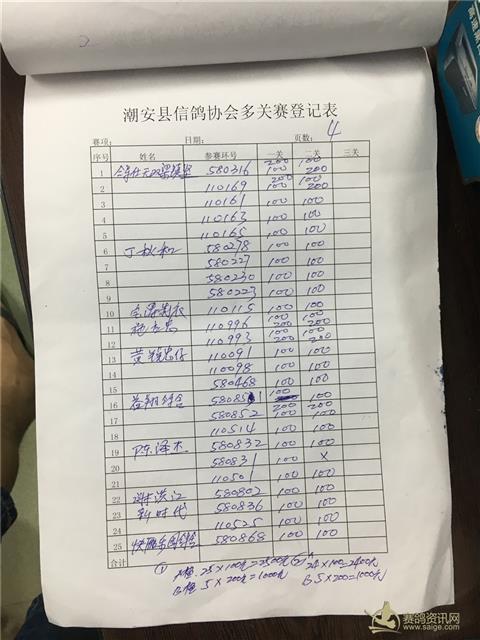 潮安县信鸽协会多关赛登记表
赛项: 日期: 页数: 4
序号 姓名 参赛环号 一关 二关 三关
1 580316 200 100 100 200
2 110169 200 100 100 200
3 110161 100 100
4 110163 100 100
5 110165 100 100
6 丁秋和 580278 100 100
7 580227 100 100
8 580230 100 100
9 580223 100 100
10 110115 100 100
11 110996 100 200 100 200
12 110993 100 200 100 200
13 110091 100 100
14 110098 100 100
15 580468 100 100
16 100 100
17 580852 200 100 200 100
18 110514 100 100
19 陈泽杰 580832 100 100
20 580831 100 x
21 110501 100 100
22 谢洪江 580802 100 100
23 新时代 580836 100 100
24 110525 100 100
25 580868 100 100
合计 ① A组 25×100元=2500元 ② A 24×100=2400元
B组 5×200元=1000元 B 5×200=1000元
赛鸽资讯网
www.saige.com